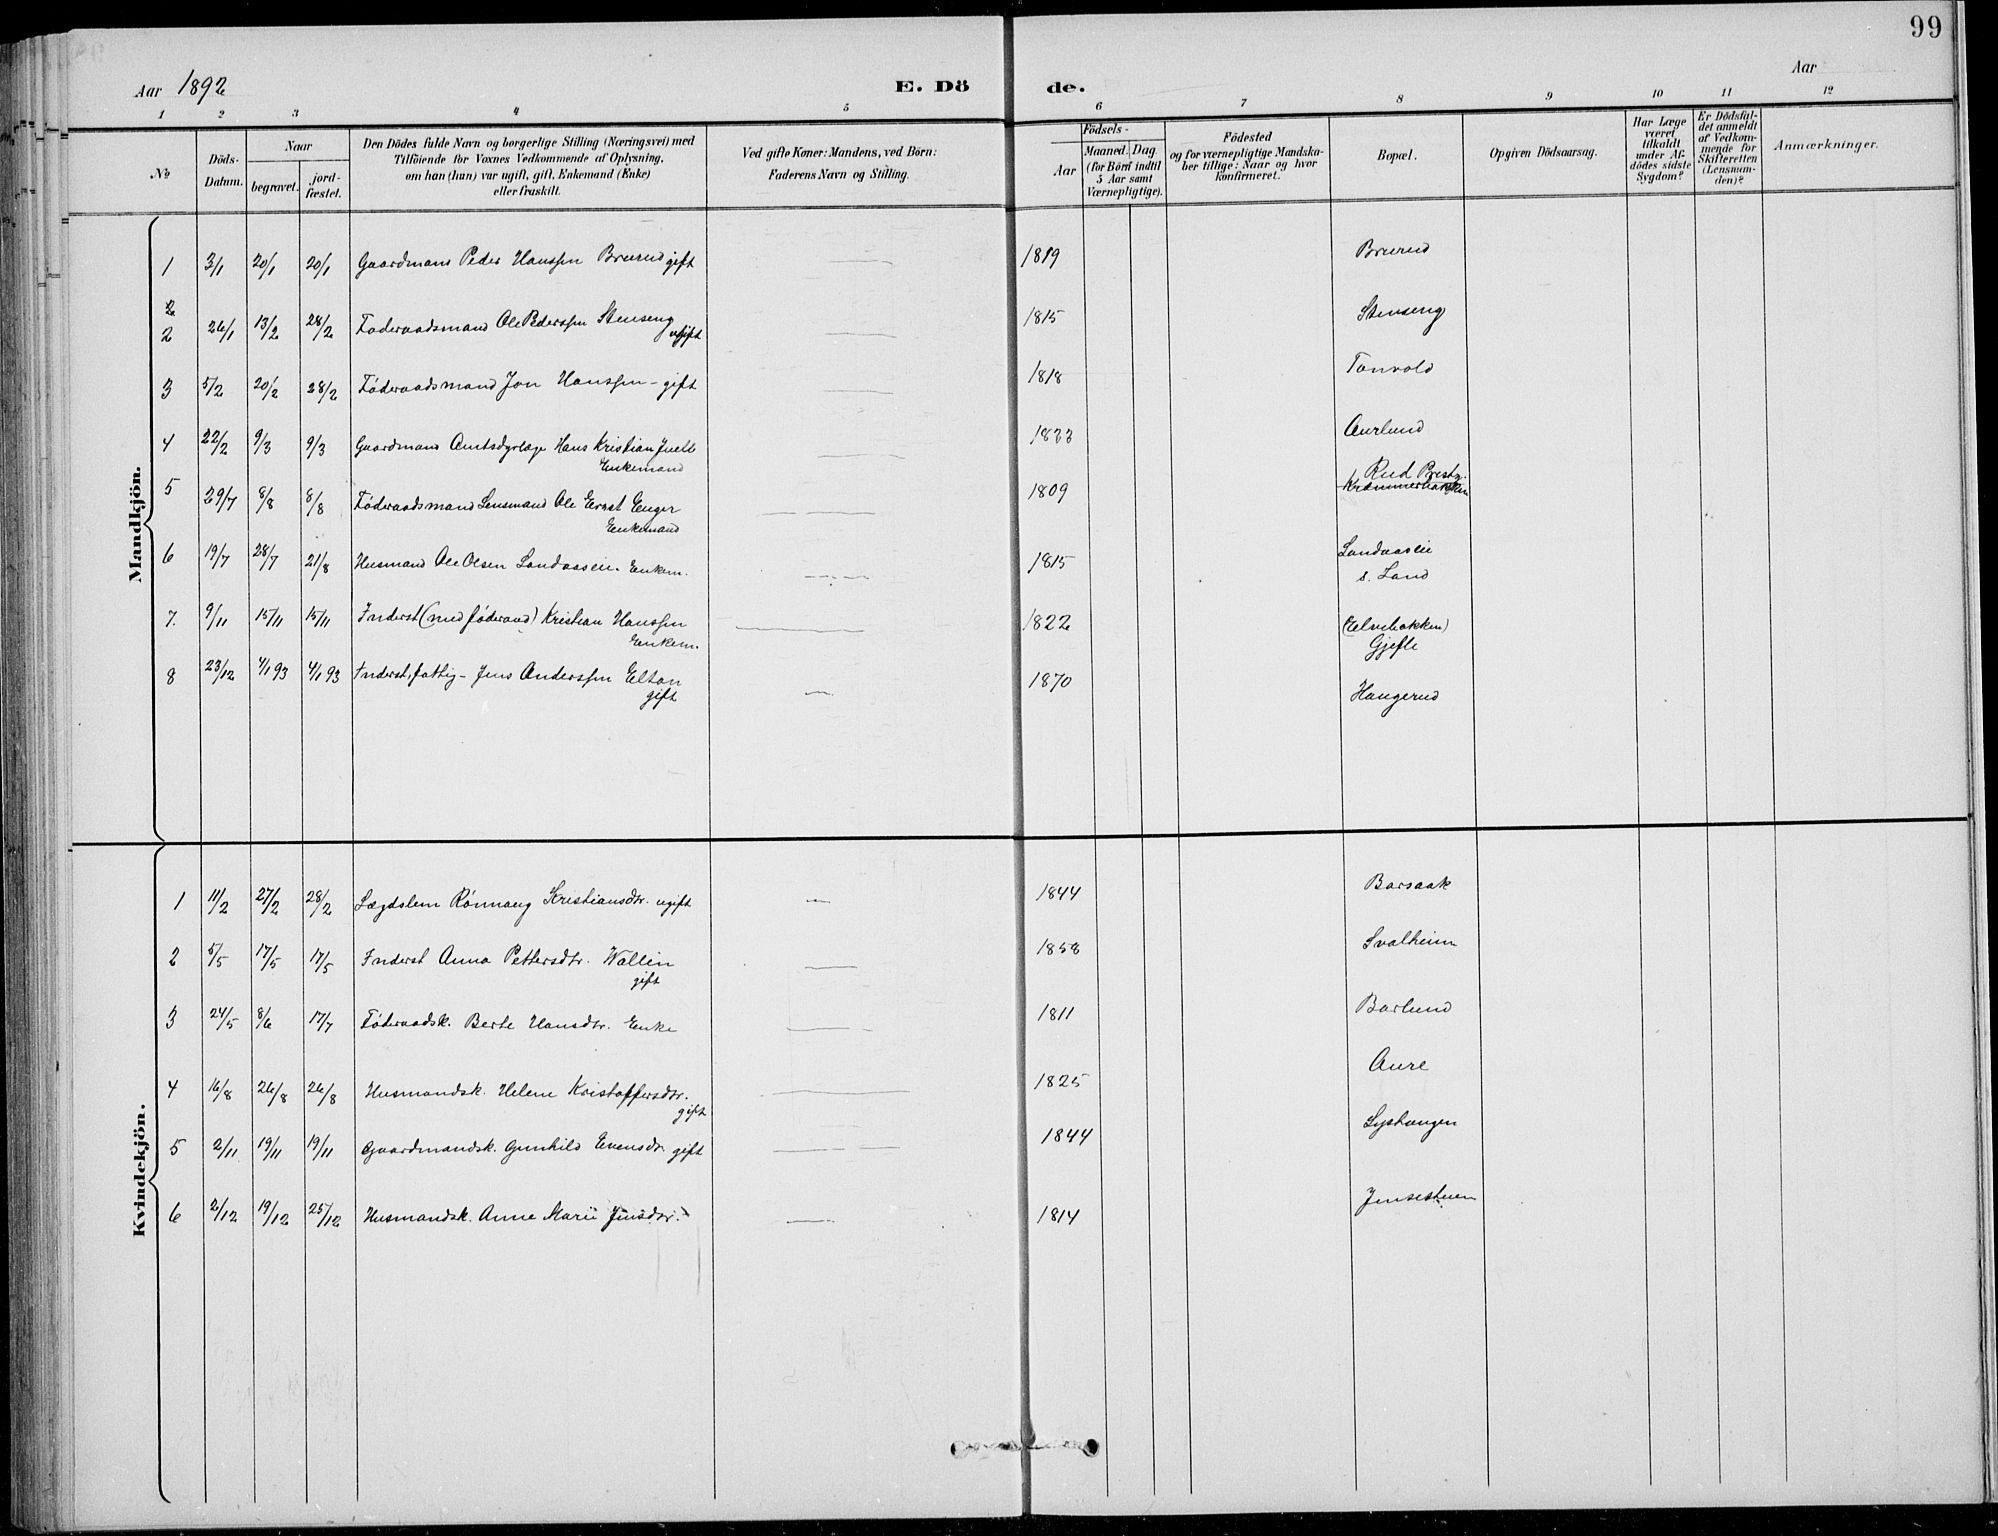 99
Aar 1892
E. Dö
de.
Aar
1 2 3 4 5 6 7 8 9 10 11 12
No
Döds-
Datum.
Naar
begravet.
jord-
fæstet.
Den Dödes fulde Navn og borgerlige Stilling (Næringsvei) med
Tilföiende for Voxnes Vedkommende af Oplysning,
om han (hun) var ugift, gift, Enkemand (Enke)
eller fraskilt.
Ved gifte Koner: Mandens, ved Börn:
Faderens Navn og Stilling.
Födsels-
Aar
Maaned. Dag.
(for Börn indtil
5 Aar samt
Værnepligtige).
Födested
og for værnepligtige Mandska-
ber tillige: Naar og hvor
konfirmeret.
Bopæl.
Opgiven Dödsaarsag.
Har Læge
været
tilkaldt
under Af-
dödes sidste
Sygdom?
Er Dödsfal-
det anmeldt
af Vedkom-
mende for
Skifteretten
(Lensman-
den)?
Anmærkninger.
Mandkjön.
1 3/1 20/1 20/1 Gaardmand Peder Hanssen Bruerud gift 1819 Bruerud
2
2 26/1 13/2 28/2 Føderaadsmand Ole Pederssen Stenseng 1815 Stenseng
ugift
3 5/2 20/2 28/2 Føderaadsmand Jon Hanssen - gift 1818 Tonvold
4 22/2 9/3 9/3 Gaardmand Amtsdyrlæge Hans Kristian Juell 1823 Aurlund
Enkemand
5 29/7 8/8 8/8 Føderaadsmand Lensmand Ole Ernst Enger 1809 Rud Prestg.
Kræmmerbakken
Enkemand
6 19/7 28/7 21/8 Husmand Ole Olsen Landaaseie. Enkem. 1815 Landaaseie
s. Land
7. 9/11 15/11 15/11 Inderst (med føderaad) Kristian Hanssen 1822 (Elvebakken)
Enkem. Gjefle
8 23/12 4/1 93 4/1 93 Inderst, fattig - Jens Anderssen Elton 1870 Haugerud
gift
Kvindekjön.
1 11/2 27/2 28/2 Lægdslem Rønnaug Kristiansdtr. ugift 1844 Barsaak
2 5/5 17/5 17/5 Inderst Anna Pettersdtr. Wallin 1858 Svalheim
gift
3 24/5 8/6 17/7 Føderaadsk. Berte Hansdtr. Enke 1811 Barlund
4 16/8 26/8 26/8 Husmandsk. Helene Kristoffersdtr. 1825 Aure
gift
5 2/11 19/11 19/11 Gaardmandsk. Gunhild Evensdr. gift 1844 Lyshaugen
6 2/12 19/12 25/12 Husmandsk. Anne Marie Jensdtr. 1814 Jensestuen